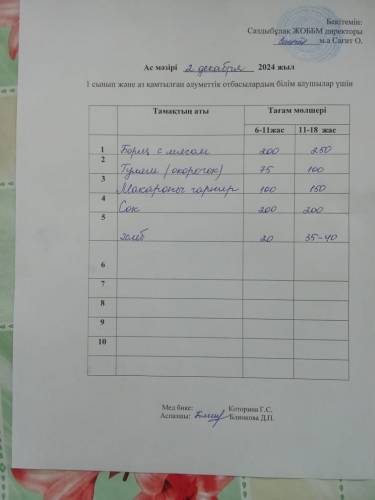 Бекітемін:
Салдыбұлақ ЖОББМ директоры
м.а Сагит О.
Ас мәзірі 2 декабря 2024 жыл
1 сынып және аз қамтылған әлуметтік отбасылардың білім алушылар үшін
Тамақтың аты Тағам мөлшері
6-11жас 11-18 жас
1 Борщ с мясом 200 250
2 Гуляш (окорочок) 75 100
3 Макароны гарнир 100 150
4 Сок 200 200
5 хлеб 20 35-40
6
7
8
9
10
Мед бике: Которина Г.С.
Аспазшы: Блинкова Д.П.